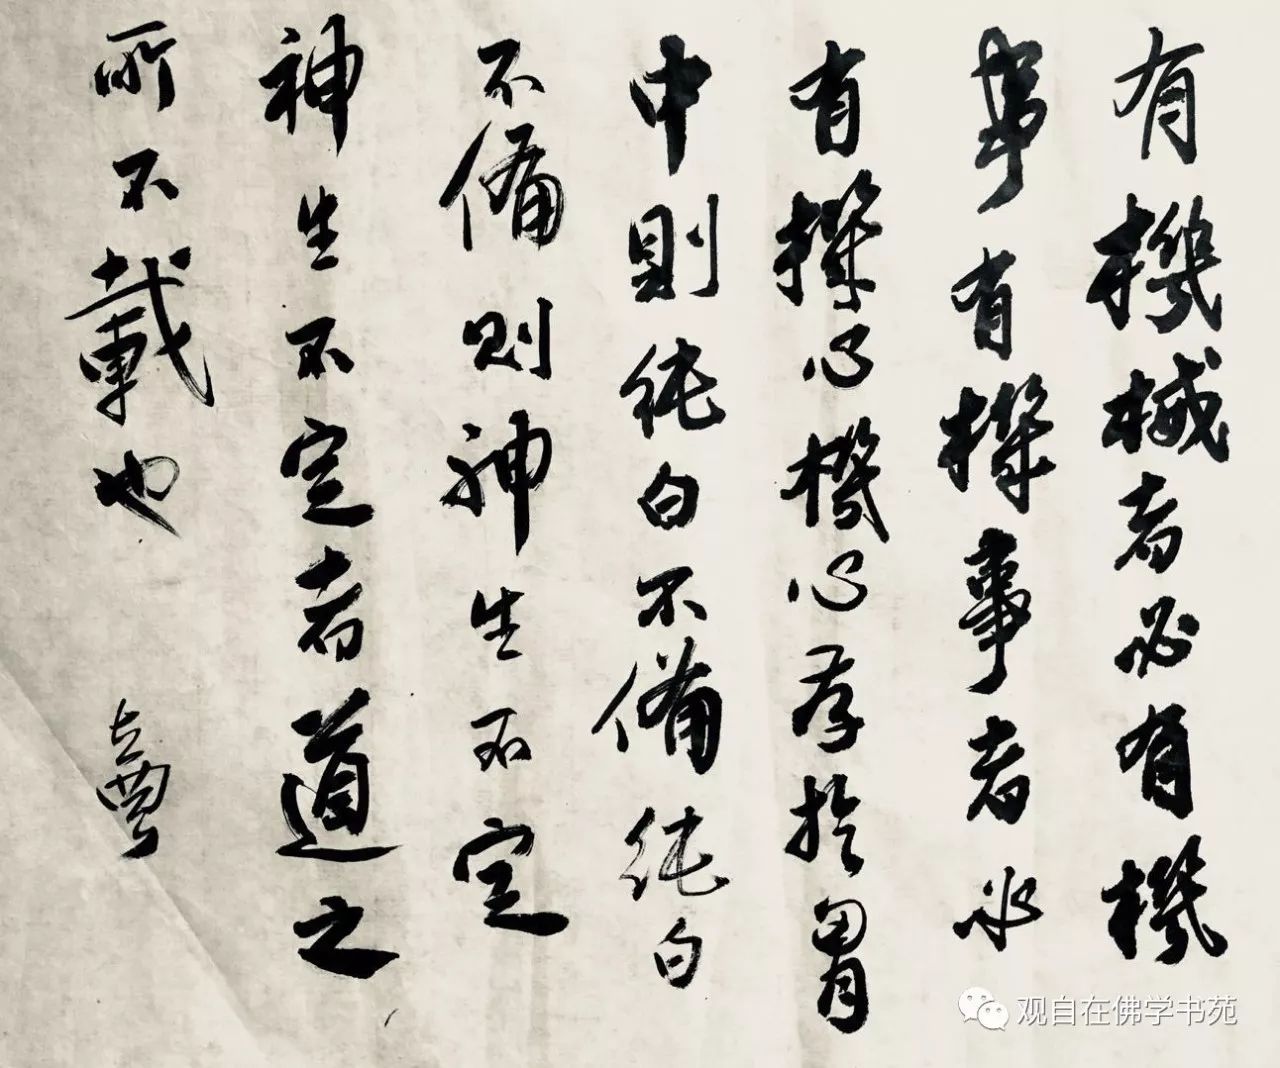 有機械者必有機
事有機事者必
有機心機心存於胷
中則純白不備純白
不備則神生不定
神生不定者道之
所不載也
观自在佛学书苑